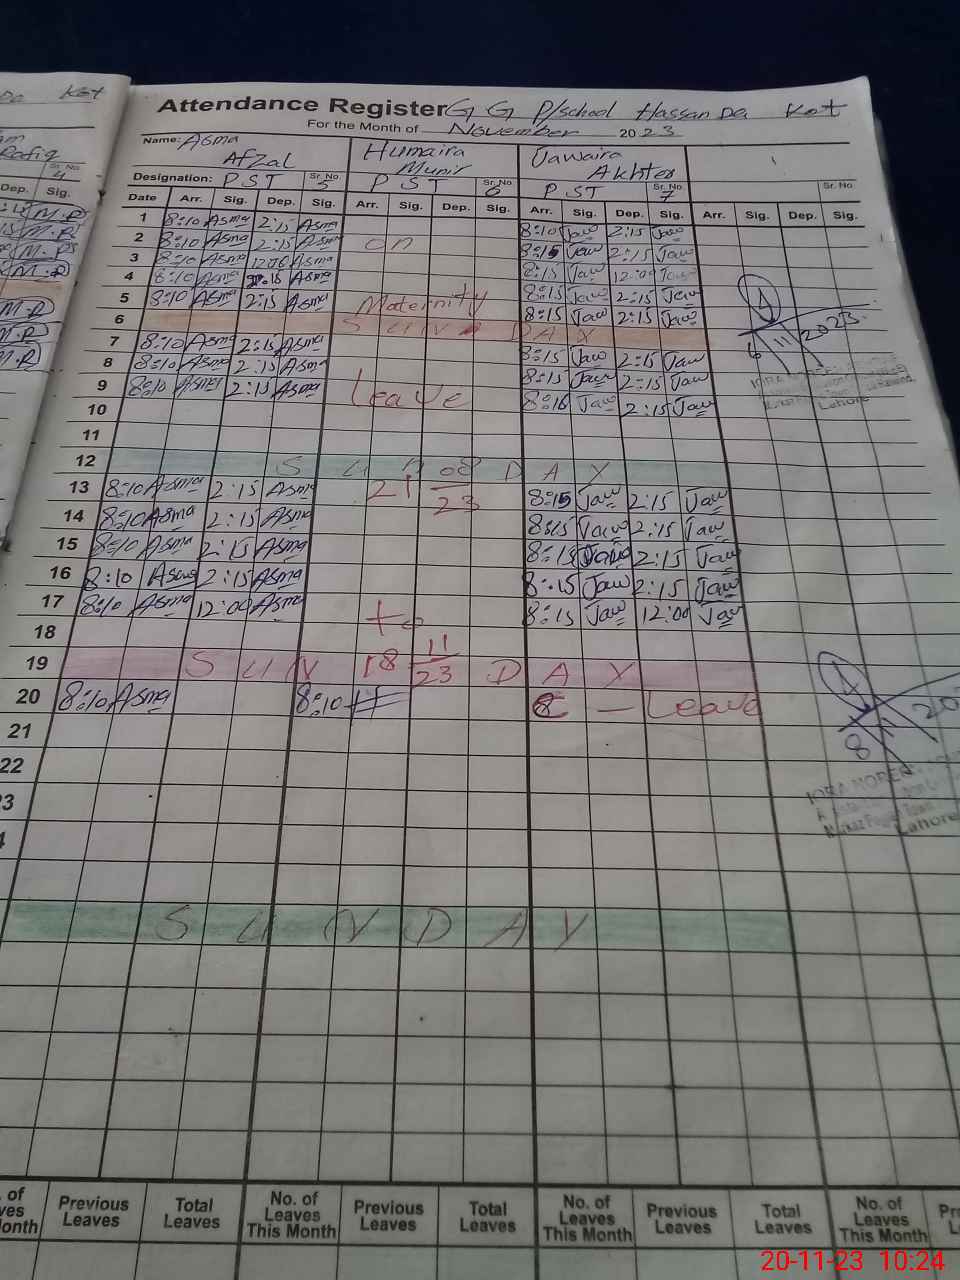 Kot
Attendance Register G G P/school Hassan Da Kot
For the Month of November 2023
Rafiq
Name: Asma Afzal Humaira Munir Jawaira Akhter
Sr. No. 4 Designation: PST Sr. No. 5 PST Sr. No. 6 PST Sr. No. 7 Sr. No.
Dep. Sig. Date Arr. Sig. Dep. Sig. Arr. Sig. Dep. Sig. Arr. Sig. Dep. Sig. Arr. Sig. Dep. Sig.
1 8:10 Asma 2:15 Asma 8:10 Jaw 2:15 Jaw
2 8:10 Asma 2:15 Asma on 8:15 Jaw 2:15 Jaw
3 8:10 Asma 12:00 Asma 8:15 Jaw 12:00 Jaw
4 8:10 Asma 2:15 Asma 8:15 Jaw 2:15 Jaw
5 8:10 Asma 2:15 Asma Maternity 8:15 Jaw 2:15 Jaw
6 SUNDAY
7 8:10 Asma 2:15 Asma 8:15 Jaw 2:15 Jaw
8 8:10 Asma 2:15 Asma 8:15 Jaw 2:15 Jaw
9 8:10 Asma 2:15 Asma Leave 8:16 Jaw 2:15 Jaw
10
11
12 SUNDAY
13 8:10 Asma 2:15 Asma 21 08 23 8:15 Jaw 2:15 Jaw
14 8:10 Asma 2:15 Asma 8:15 Jaw 2:15 Jaw
15 8:10 Asma 2:15 Asma 8:15 Jaw 2:15 Jaw
16 8:10 Asma 2:15 Asma 8:15 Jaw 2:15 Jaw
17 8:10 Asma 12:00 Asma to 8:15 Jaw 12:00 Jaw
18
19 SUNDAY 18 11 23
20 8:10 Asma 8:10 C - Leave
21
22
SUNDAY
6 11 2023
Lahore
8 11 20
Lahore
Previous Leaves Total Leaves No. of Leaves This Month Previous Leaves Total Leaves No. of Leaves This Month Previous Leaves Total Leaves No. of Leaves This Month
20-11-23 10:24